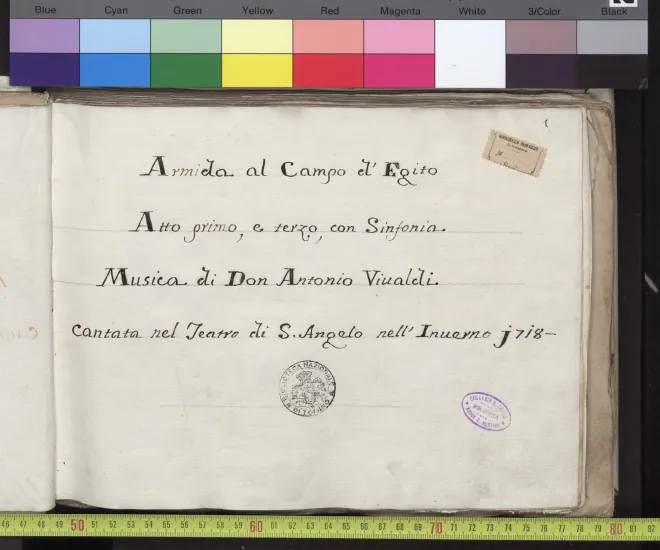 Blue Cyan Green Yellow Red Magenta White 3/Color Black
1
Armida al Campo d'Egito
Atto primo, e terzo, con Sinfonia.
Musica di Don Antonio Viualdi.
Cantata nel Teatro di S. Angelo nell'Inuerno j718-
BIBLIOTECA NAZIONALE DI TORINO
46 47 48 49 50 51 52 53 54 55 56 57 58 59 60 61 62 63 64 65 66 67 68 69 70 71 72 73 74 75 76 77 78 79 80 81 82